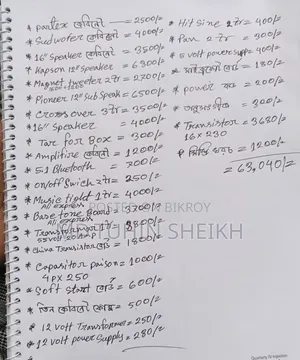 * partex কেবিনেট — 2500/=
* Sudwofer কেবিনেট = 4000/=
* 16" speaker কেবিনেট = 3500/=
* Kapson 12" speaker = 6300/=
* Magnet tweeter 2টা = 2700/=
* Pioneer 12" Sub Speak = 6500/=
* Cross over 3টা = 3500/=
* 16" speaker = 4000/=
* Tar for Box = 300/=
* Amplifire কেবিনেট = 1200/=
* 5.1 Bluetooth = 700/=
* on/off Swich 2টা = 250/=
* Music tight 1টা = 4000/=
Ali express
* Base tone Board = 3700/=
* Transformar = 3800/=
* China Transistor বোর্ড = 1800/=
* Capasitor paison = 1000/=
4 px 250
* Soft Start বোর্ড = 600/=
* তিন কেবিনেট = 500/=
* 12 volt Transforme = 250/=
* 12 volt power Supply = 280/=
* Hit Sine 2টা = 400/=
* Fan 2টা = 300/=
volt power supp = 400/=
বোর্ড = 180/=
* power = 200/=
= 300/=
* Transistor = 3680/=
16 x 230
* = 1200/=
= 63,040/=
POSTED ON BIKROY
TUHIN SHEIKH